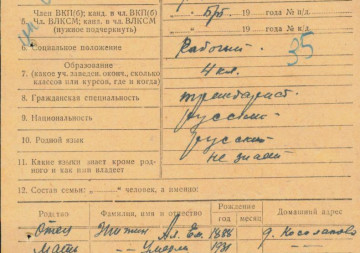 4. Член ВКП(б); канд. в чл. ВКП(б) б/п 19 года № п./д.
5. Чл. ВЛКСМ; канд. в чл. ВЛКСМ 19 года № п./д.
(нужное подчеркнуть)
6. Социальное положение Рабочий 35
Образование
7. (какое уч. заведен. оконч., сколько классов или курсов, где и когда) 4 кл.
8. Гражданская специальность
9. Национальность русский
10. Родной язык русский
11. Какие языки знает кроме родного и как ими владеет не знает
12. Состав семьи: „ “ человек, а именно:
Родство Фамилия, имя и отчество Рождение год месяц Домашний адрес
Отец Ал. 1888 д.
Мать — " — Умерла 1931